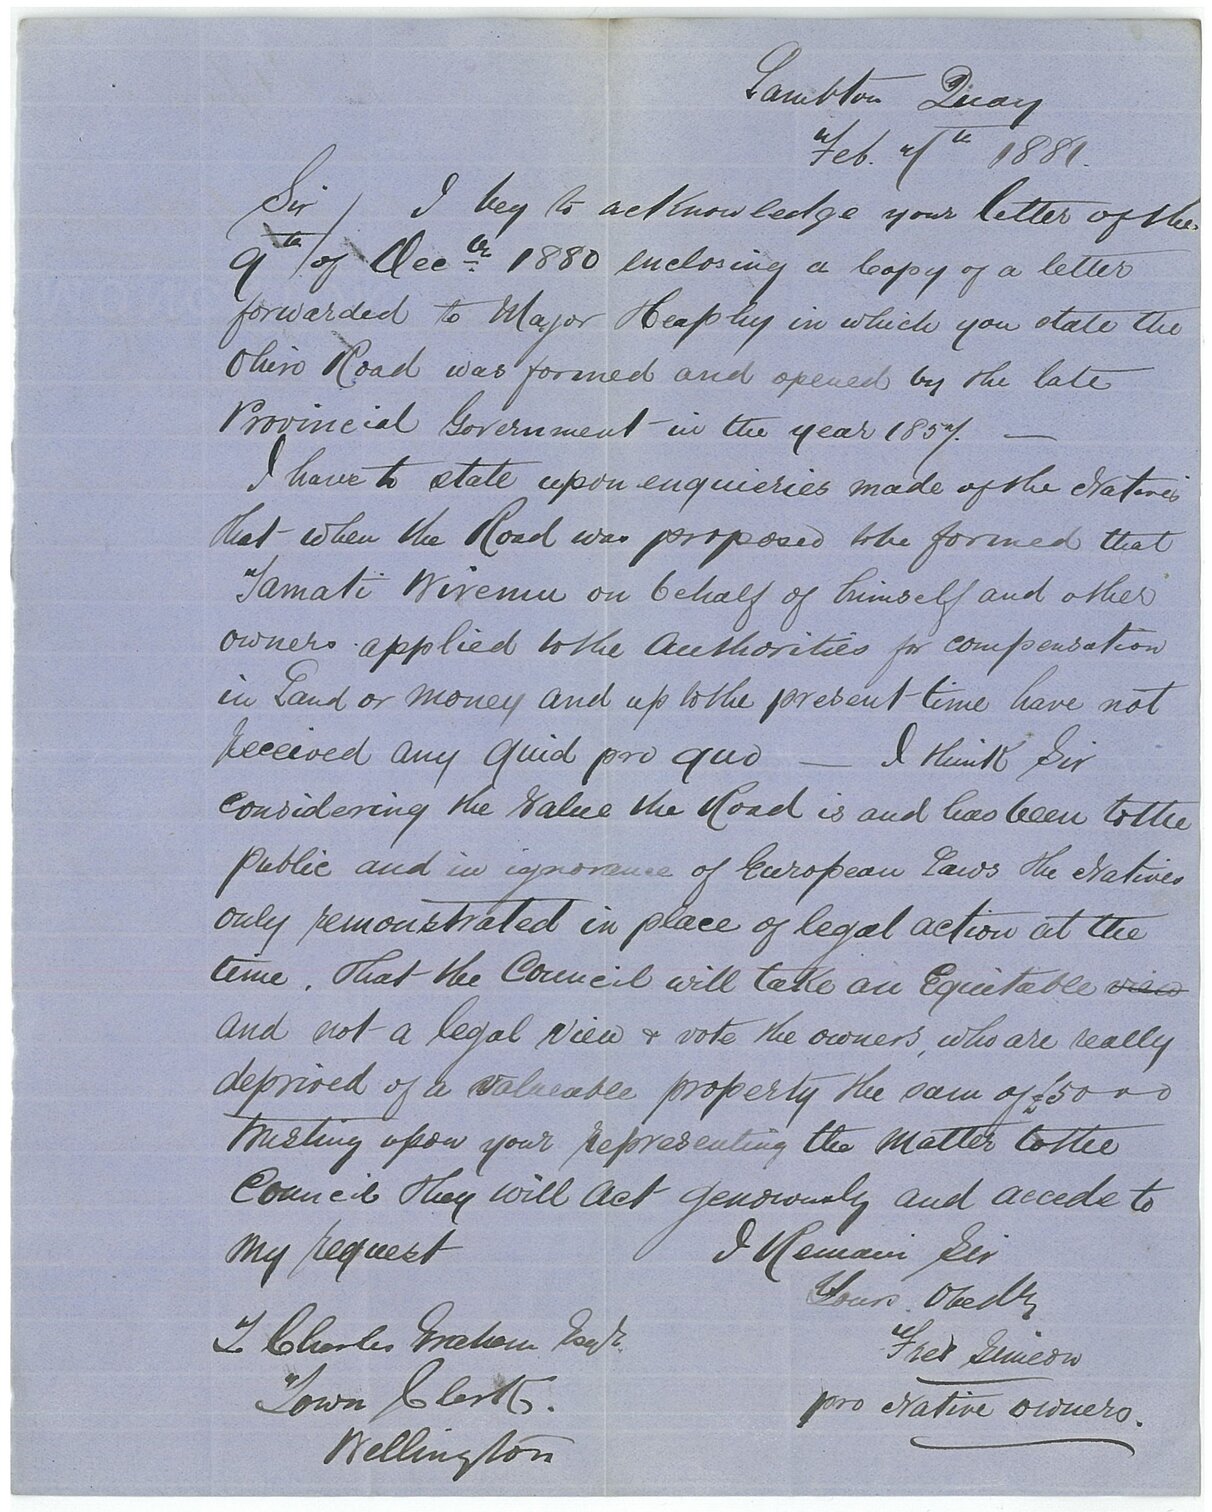 Lambton Quay
Feb. 7th 1881.
Sir / I beg to acknowledge your letter of the
9th of Decbr 1880 enclosing a Copy of a letter
forwarded to Major Heaphy in which you state the
Ohiro Road was formed and opened by the late
Provincial Government in the year 1857. —
I have to state upon enquieries made of the Natives
that when the Road was proposed to be formed that
Tamati Wiremu on behalf of himself and other
owners applied to the Authorities for compensation
in Land or money and up to the present time have not
received any quid pro quo — I think Sir
Considering the Value the Road is and has been to the
public and in ignorance of European Laws the Natives
only remonstrated in place of legal action at the
time. That the Council will take an Equitable view
and not a legal view & vote the owners, who are really
deprived of a valueable property the sum of £5000
trusting upon your representing the Matter to the
Council they will Act generously and accede to
my request
I Remain Sir
Yours Obedtly
Fred Simeon
pro Native Owners.
To Charles Graham Esqr.
Town Clerk.
Wellington